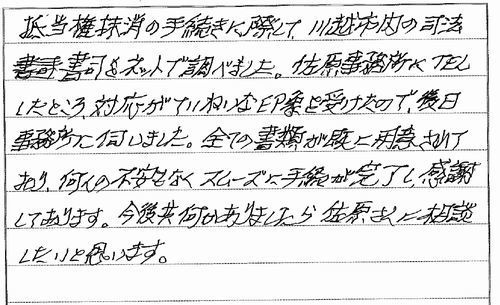 抵当権抹消の手続きに際して、川越市内の司法
書士書司をネットで調べました。佐原事務所へTEL
したところ、対応がていねいな印象を受けたので、後日
事務所に伺いました。全ての書類が既に用意されて
おり、何んの不安もなくスムーズに手続が完了し、感謝
しております。今後共何かありましたら佐原さんに相談
したいと思います。